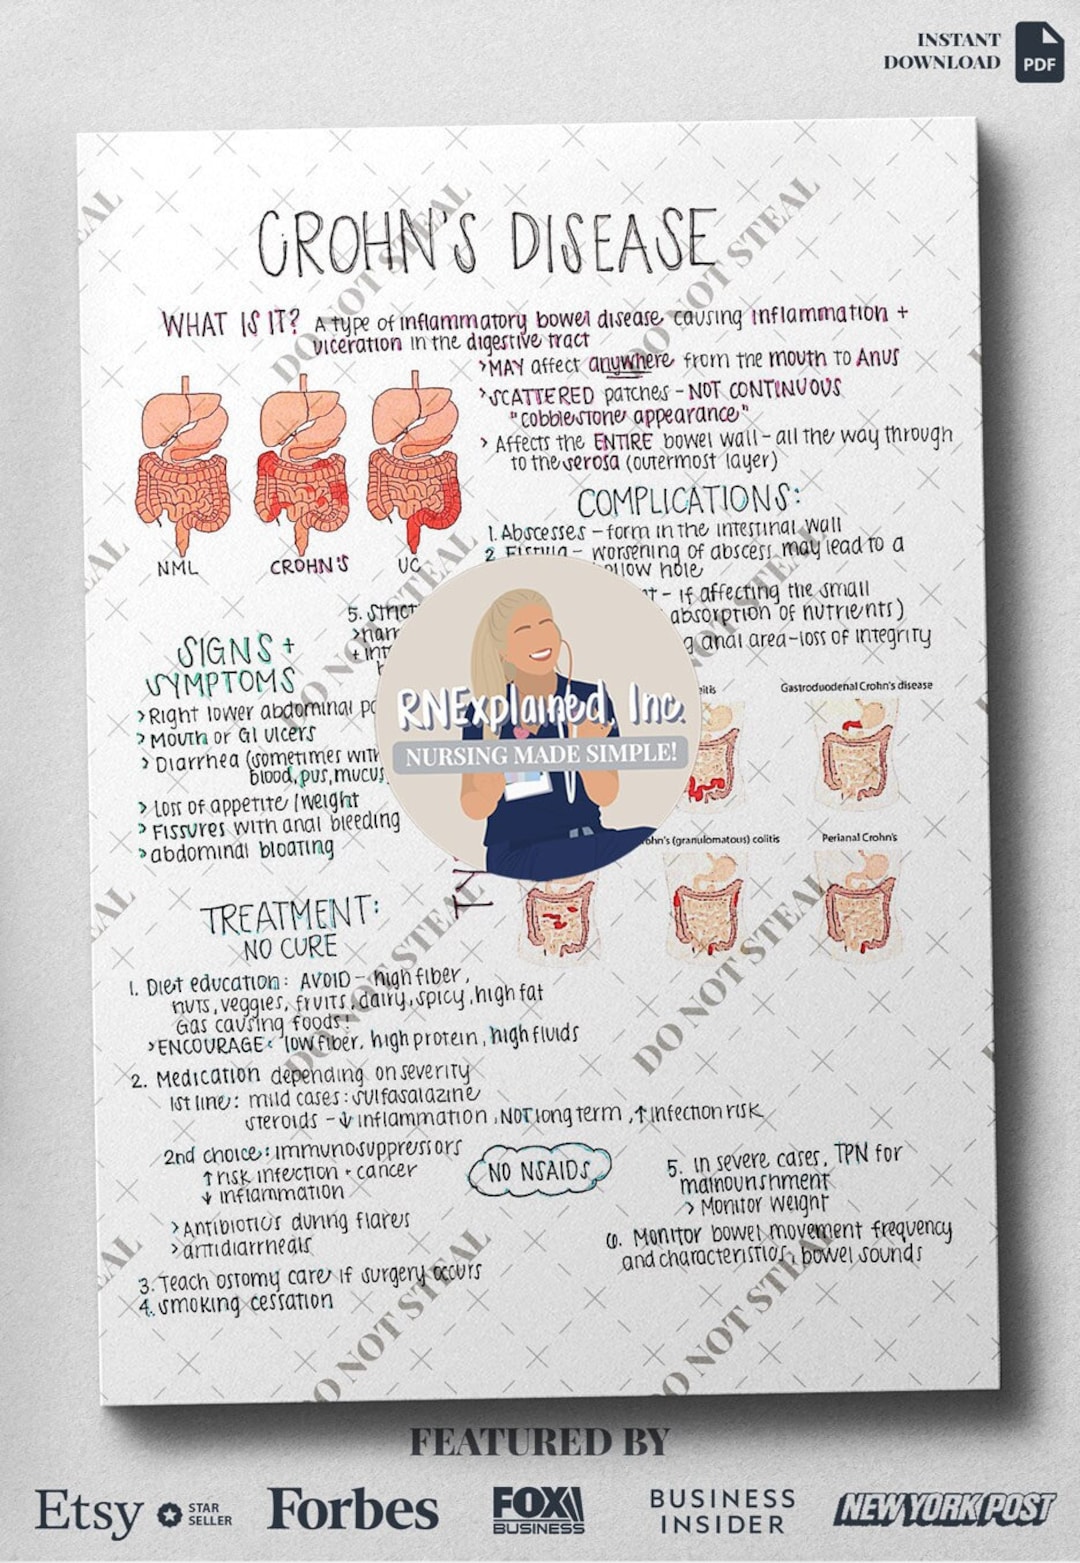 INSTANT
DOWNLOAD
PDF
CROHN'S DISEASE
WHAT IS IT? A type of inflammatory bowel disease causing inflammation +
ulceration in the digestive tract
>MAY affect anywhere from the mouth to Anus
>SCATTERED patches - NOT CONTINUOUS
"cobblestone appearance"
> Affects the ENTIRE bowel wall - all the way through
to the serosa (outermost layer)
NML
CROHN'S
UC
COMPLICATIONS:
1. Abscesses - form in the intestinal wall
2. Fistula - worsening of abscess may lead to a
hole
- if affecting the small
absorption of nutrients)
anal area-loss of integrity
5.
SIGNS +
SYMPTOMS
>Right lower abdominal
>Mouth or GI ulcers
> Diarrhea (sometimes with
blood, pus, mucus
> Loss of appetite/weight
> Fissures with anal bleeding
>abdominal bloating
RNExplained, Inc.
NURSING MADE SIMPLE!
Gastroduodenal Crohn's disease
(granulomatous) colitis
Perianal Crohn's
TREATMENT:
NO CURE
1. Diet education: AVOID - high fiber,
nuts, veggies, fruits, dairy, spicy, high fat
Gas causing foods!
>ENCOURAGE: low fiber, high protein, high fluids
2. Medication depending on severity
1st line: mild cases: sulfasalazine
steroids - ↓ inflammation, NOT long term, ↑ infection risk
2nd choice: immunosuppressors
↑ risk infection + cancer
↓ inflammation
>Antibiotics during flares
>antidiarrheals
3. Teach ostomy care if surgery occurs
4. smoking cessation
NO NSAIDS
5. in severe cases, TPN for
malnourishment
> Monitor weight
6. Monitor bowel movement frequency
and characteristics, bowel sounds
DO NOT STEAL
DO NOT STEAL
DO NOT STEAL
DO NOT STEAL
DO NOT STEAL
DO NOT STEAL
DO NOT STEAL
DO NOT STEAL
FEATURED BY
Etsy STAR
SELLER
Forbes
FOX
BUSINESS
BUSINESS
INSIDER
NEW YORK POST